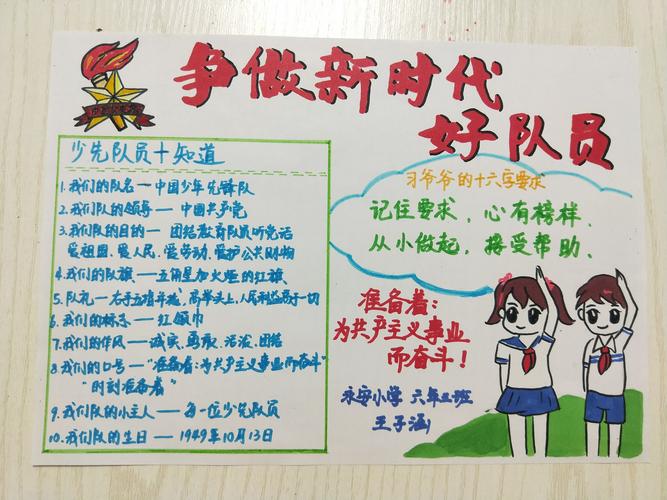 争做新时代
好队员
少先队员十知道
1.我们的队名——中国少年先锋队
2.我们队的领导——中国共产党
3.我们队的目的——团结教育队员听党话
爱祖国、爱人民、爱劳动、爱护公共财物
4.我们的队旗——五角星加火炬的红旗、
5.队礼——右手五指并拢,高举头上,人民利益高于一切
6.我们的标志——红领巾
7.我们的作风——诚实、勇敢、活泼、团结
8.我们的口号——"准备着:为共产主义事业而奋斗"
"时刻准备着"
9.我们队的小主人——每一位少先队员
10.我们队的生日——1949年10月13日
习爷爷的十六字要求
记住要求、心有榜样、
从小做起、接受帮助、
准备着:
为共产主义事业
而奋斗!
永安小学 六年二班
王子涵